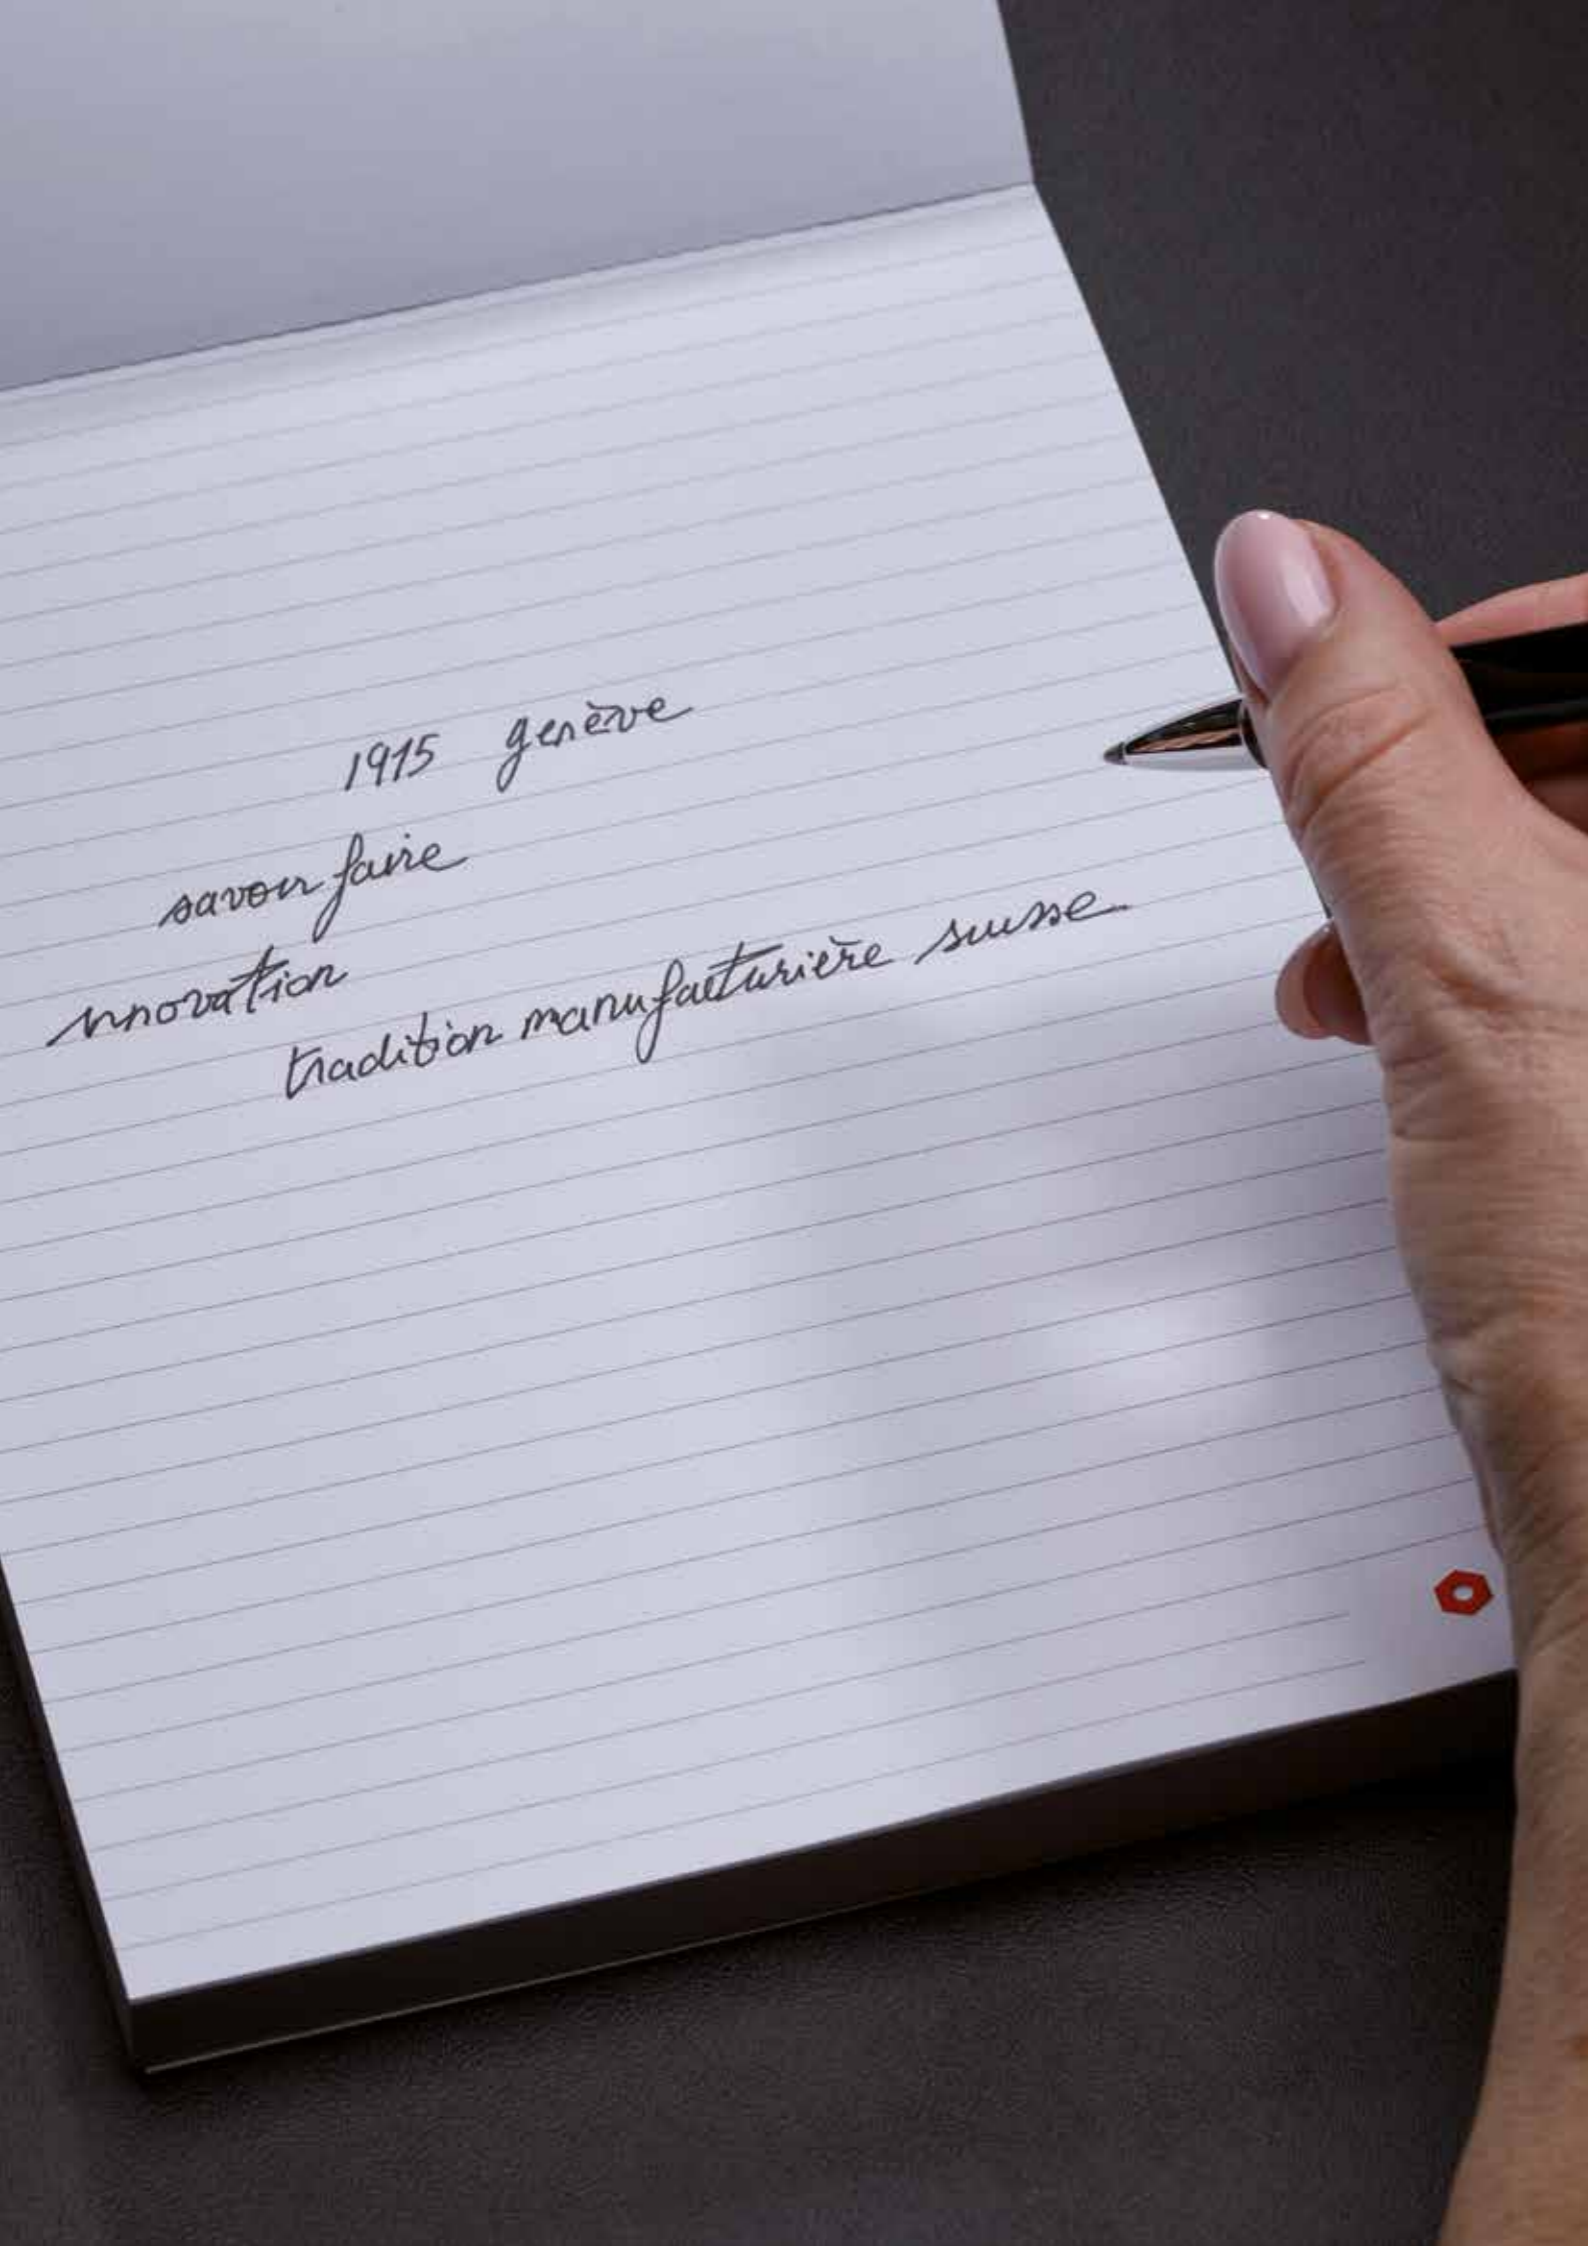 1915 genève
savoir faire
innovation
tradition manufacturière suisse